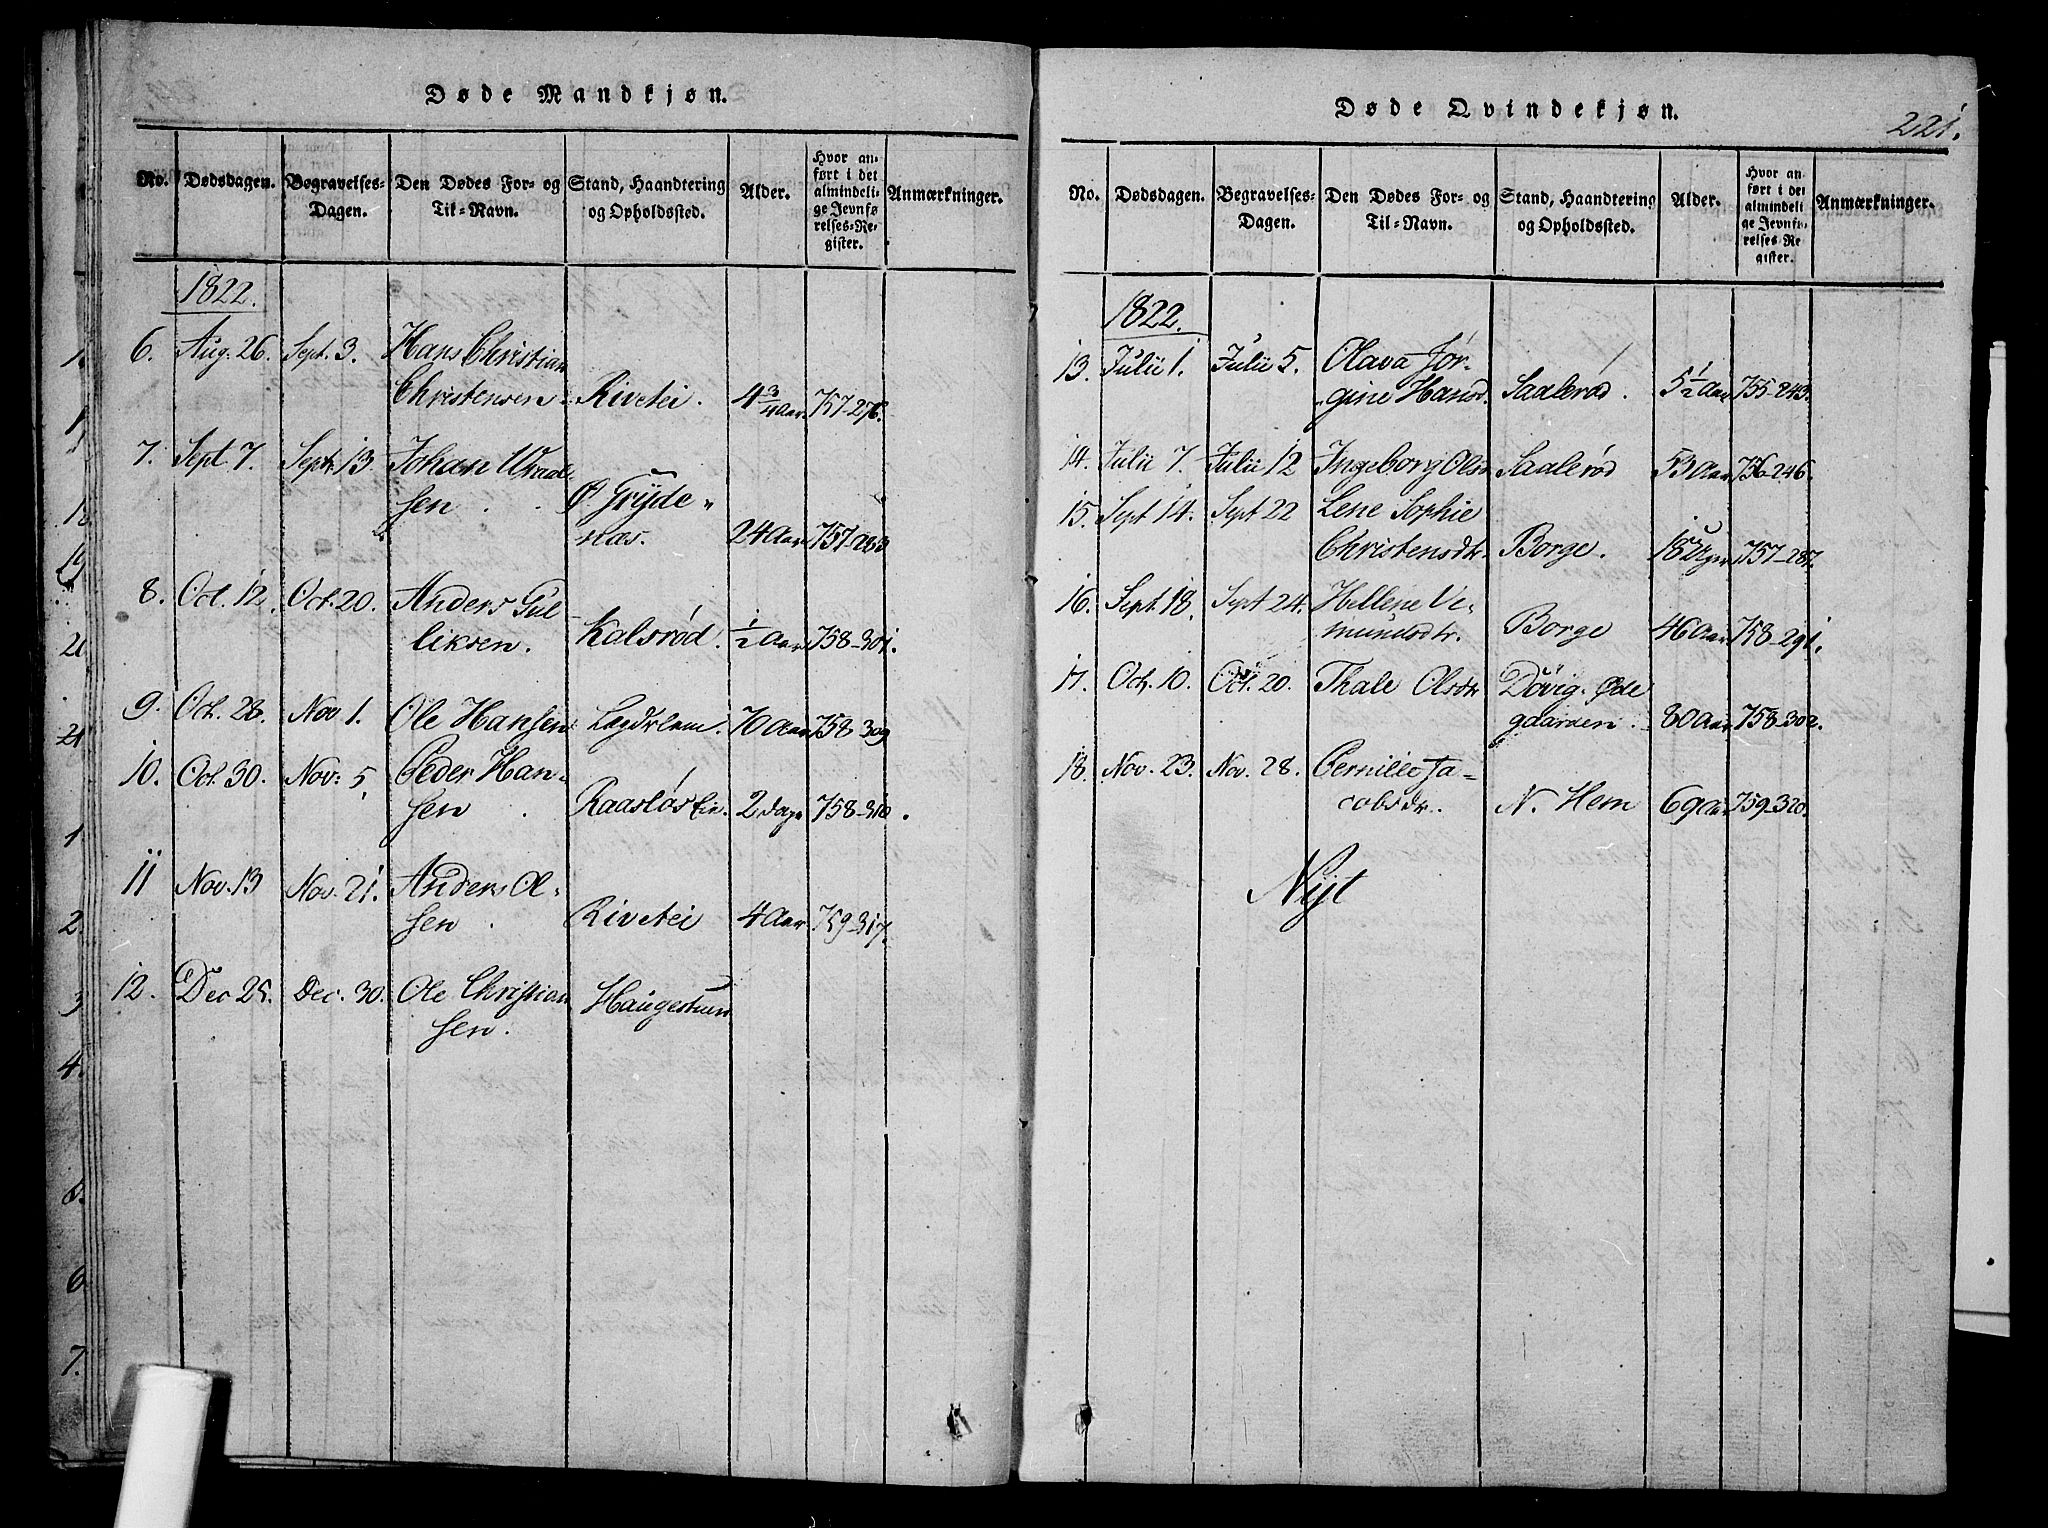 Døde Mandkjøn.
No. Dødsdagen. Begravelses-Dagen. Den Dødes For- og Til-Navn. Stand, Haandtering og Opholdssted. Alder. Hvor anført i det almindelige Jevnførelses-Register. Anmærkninger.
1822.
6. Aug. 26. Sept. 3. Hans Christian
Christensen. Rivetei. 4 3/4 Aar. 757-276.
7. Sept 7. Septr. 13. Johan
sen. Ø Gryde-
næs. 24 Aar 757-283
8. Oct. 12. Oct. 20. Anders Gul
liksen. Kalsrød. 1/2 Aar 758-301.
9. Oct. 28. Nov 1. Ole Hansen 70 Aar 758-309
10. Oct. 30. Nov: 5. Peder Han-
sen. Raasløs Eie. 2 Dage 758-310.
11 Nov. 13 Nov. 21. Anders Ol-
sen. Rivetei 4 Aar 759-317.
12. Dec 25. Dec. 30. Ole Christian
sen. Haugestuen
Døde Qvindekjøn.
221.
No. Dødsdagen. Begravelses-Dagen. Den Dødes For- og Til-Navn. Stand, Haandtering og Opholdssted. Alder. Hvor anført i det almindelige Jevnførelses Register. Anmærkninger.
1822.
13. Julii 1. Julii 5. Olava Jør-
gine Hansd. Saalerød. 5 1/2 Aar 755-243.
14. Julii 7. Julii 12 Ingeborg Olsd Saalerød 53 Aar 756-246.
15. Sept 14. Sept 22 Lene Sophie
Christensdtr. Borge. 757-287.
16. Sept. 18. Sept 24. Hellene Ve-
mundsdtr. Borge 46 Aar 758-291.
17. Oct. 10. Oct. 20. Thale Olsdtr Døvig-Øde
gaarden. 80 Aar 758-302.
18. Nov. 23. Nov. 28. Pernille Ja-
cobsdr. N. Hem 69 Aar 759-320.
Nyt